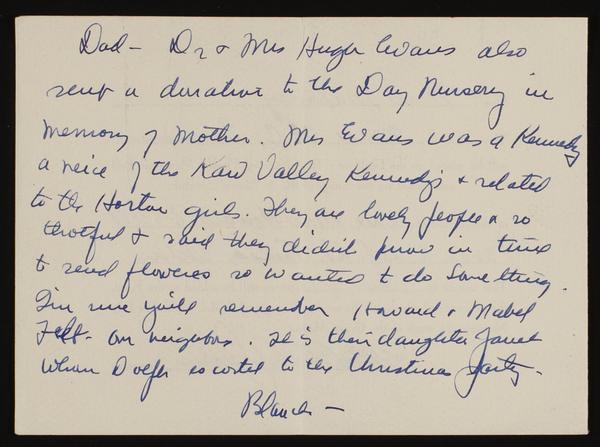 Dad - Dr & Mrs Hugh Evans also
sent a donation to the Day Nursery in
memory of Mother. Mrs Evans was a Kennedy
a neice of the Kaw Valley Kennedys & related
to the Horton girls. They are lovely people & so
thotful & said they didn't know in time
to send flowers so wanted to do something.
I'm sure you'll remember Howard & Mabel
- our neighbors. It is their daughter Janet
whom escorted to the Christmas party -
Blanch -